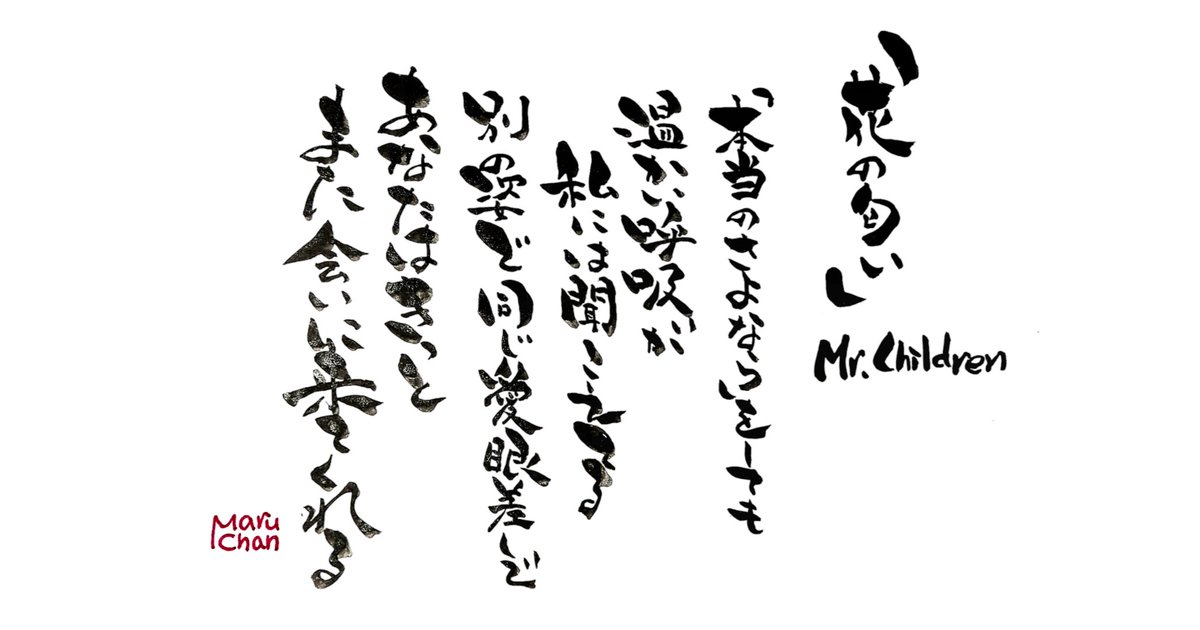 「花の匂い」
Mr.Children
「本当のさよなら」をしても
温かい呼吸が
私には聞こえてる
別の姿で同じ愛眼差しで
あなたはきっと
また会いに来てくれる
Maru
Chan